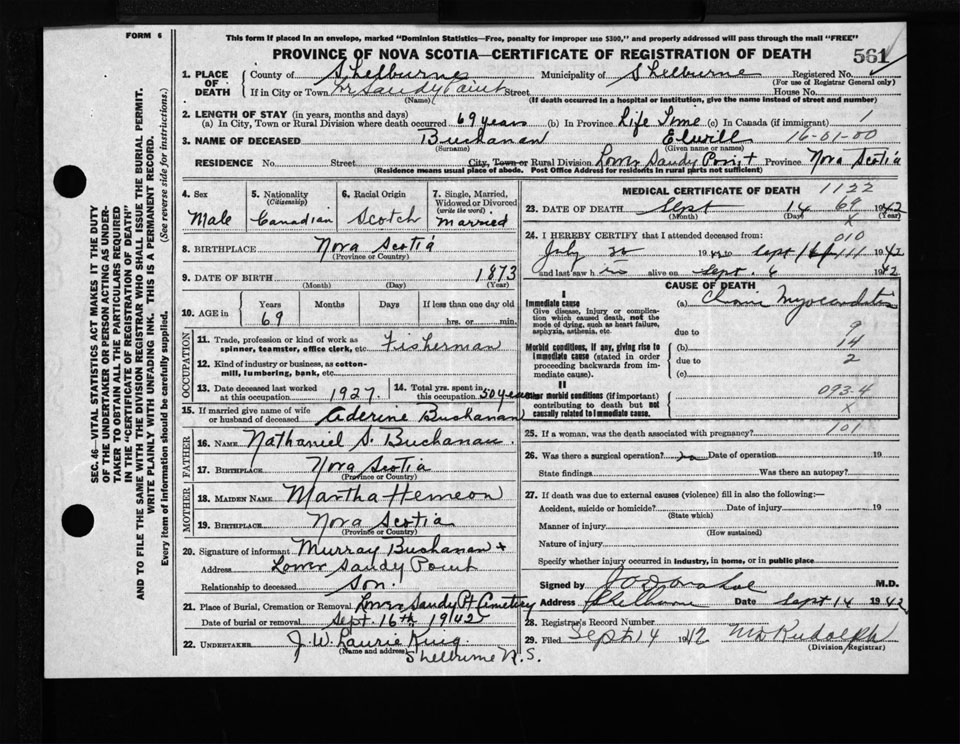 FORM 6
This form if placed in an envelope, marked "Dominion Statistics—Free, penalty for improper use $300," and properly addressed will pass through the mail "FREE"
PROVINCE OF NOVA SCOTIA—CERTIFICATE OF REGISTRATION OF DEATH
561
1. PLACE OF DEATH
County of Shelburne Municipality of Shelburne Registered No.
(For use of Registrar General only)
If in City or Town Lr Sandy Point Street House No.
(Name) (If death occurred in a hospital or institution, give the name instead of street and number)
2. LENGTH OF STAY (in years, months and days)
(a) In City, Town or Rural Division where death occurred 69 years (b) In Province Life Time (c) In Canada (if immigrant) 1
3. NAME OF DECEASED Buchanan Elwill 16-01-00
(Surname) (Given name or names)
RESIDENCE No. Street City, Town or Rural Division Lower Sandy Point Province Nova Scotia
(Residence means usual place of abode. Post Office Address for residents in rural parts not sufficient)
4. Sex Male
5. Nationality (Citizenship) Canadian
6. Racial Origin Scotch
7. Single, Married, Widowed or Divorced (write the word) Married
8. BIRTHPLACE Nova Scotia
(Province or Country)
9. DATE OF BIRTH 1873
(Month) (Day) (Year)
10. AGE in Years Months Days If less than one day old
69 hrs. or min.
OCCUPATION
11. Trade, profession or kind of work as spinner, teamster, office clerk, etc. Fisherman
12. Kind of industry or business, as cotton-mill, lumbering, bank, etc.
13. Date deceased last worked at this occupation. 1927.
14. Total yrs. spent in this occupation. 50 years
15. If married give name of wife or husband of deceased Aderine Buchanan
FATHER
16. NAME Nathaniel S. Buchanan.
17. BIRTHPLACE Nova Scotia
(Province or Country)
MOTHER
18. MAIDEN NAME Martha Hemeon
19. BIRTHPLACE Nova Scotia
(Province or Country)
20. Signature of informant Murray Buchanan +
Address Lower Sandy Point
Relationship to deceased Son.
21. Place of Burial, Cremation or Removal Lower Sandy Pt Cemetery
Date of burial or removal Sept. 16th 1942
22. UNDERTAKER J. W. Laurie King.
(Name and address) Shelburne N. S.
MEDICAL CERTIFICATE OF DEATH 1122
23. DATE OF DEATH Sept 14 69 1942
(Month) (Day) x (Year)
24. I HEREBY CERTIFY that I attended deceased from: 010
July 20 19 to Sept 111 1942
and last saw h alive on Sept. 6 1942
CAUSE OF DEATH
I
Immediate cause
Give disease, injury, or complication which caused death, not the mode of dying, such as heart failure, asphyxia, asthenia, etc.
(a) Myocarditis
due to 9
Morbid conditions, if any, giving rise to immediate cause (stated in order proceeding backwards from immediate cause).
(b) 14
due to 2
(c)
II
Other morbid conditions (if important) contributing to death but not causally related to immediate cause.
093-4
x
25. If a woman, was the death associated with pregnancy? 101
26. Was there a surgical operation? no Date of operation 19
State findings Was there an autopsy?
27. If death was due to external causes (violence) fill in also the following:—
Accident, suicide or homicide? Date of injury 19
(State which)
Manner of injury
(How sustained)
Nature of injury
Specify whether injury occurred in industry, in home, or in public place
Signed by M.D.
Address Shelburne Date Sept 14 1942
28. Registrar's Record Number
29. Filed Sept 14 1942 Rudolph
(Division Registrar)
SEC. 46—VITAL STATISTICS ACT MAKES IT THE DUTY
OF THE UNDERTAKER OR PERSON ACTING AS UNDER-
TAKER TO OBTAIN ALL THE PARTICULARS REQUIRED
IN THE "CERTIFICATE OF REGISTRATION OF DEATH"
AND TO FILE THE SAME WITH THE DIVISION REGISTRAR WHO SHALL ISSUE THE BURIAL PERMIT.
WRITE PLAINLY WITH UNFADING INK. THIS IS A PERMANENT RECORD.
Every item of information should be carefully supplied. (See reverse side for instructions.)